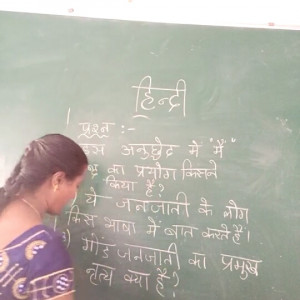 हिन्दी
प्रश्न :-
इस अनुछेद में "में"
का प्रयोग कितने
किया है?
ये जनजाती के लोग
किस भाषा में बात करते हैं।
3) गोंड जनजाती का प्रमुख
नृत्य क्या है?